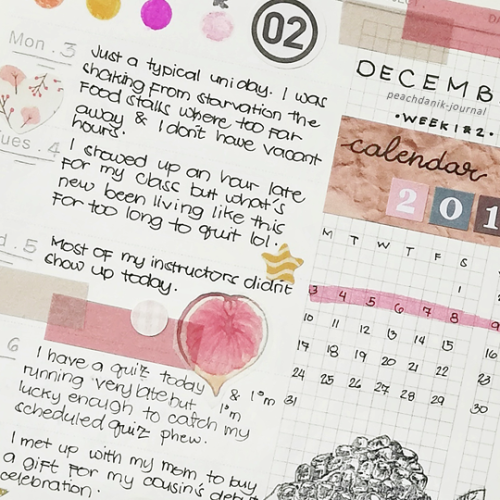 02
Mon. 3
Just a typical uni day. I was
shaking from starvation the
food stalls where too far
away & I don't have vacant
hours.
ues. 4
I showed up an hour late
for my class but what's
new been living like this
for too long to quit lol.
d. 5
Most of my instructors didn't
show up today.
6
I have a quiz today & I'm
running very late but I'm
lucky enough to catch my
scheduled quiz phew.
I met up with my mom to buy
a gift for my cousin's debut
celebration.
DECEMB
peachdanik-journal
•WEEK 1 & 2•
calendar
201
M T W T F S
1
3 4 5 6 7 8 9
10 11 12 13 14 15
17 18 19 20 21 22
24 25 26 27 28 29
31
16
23
30